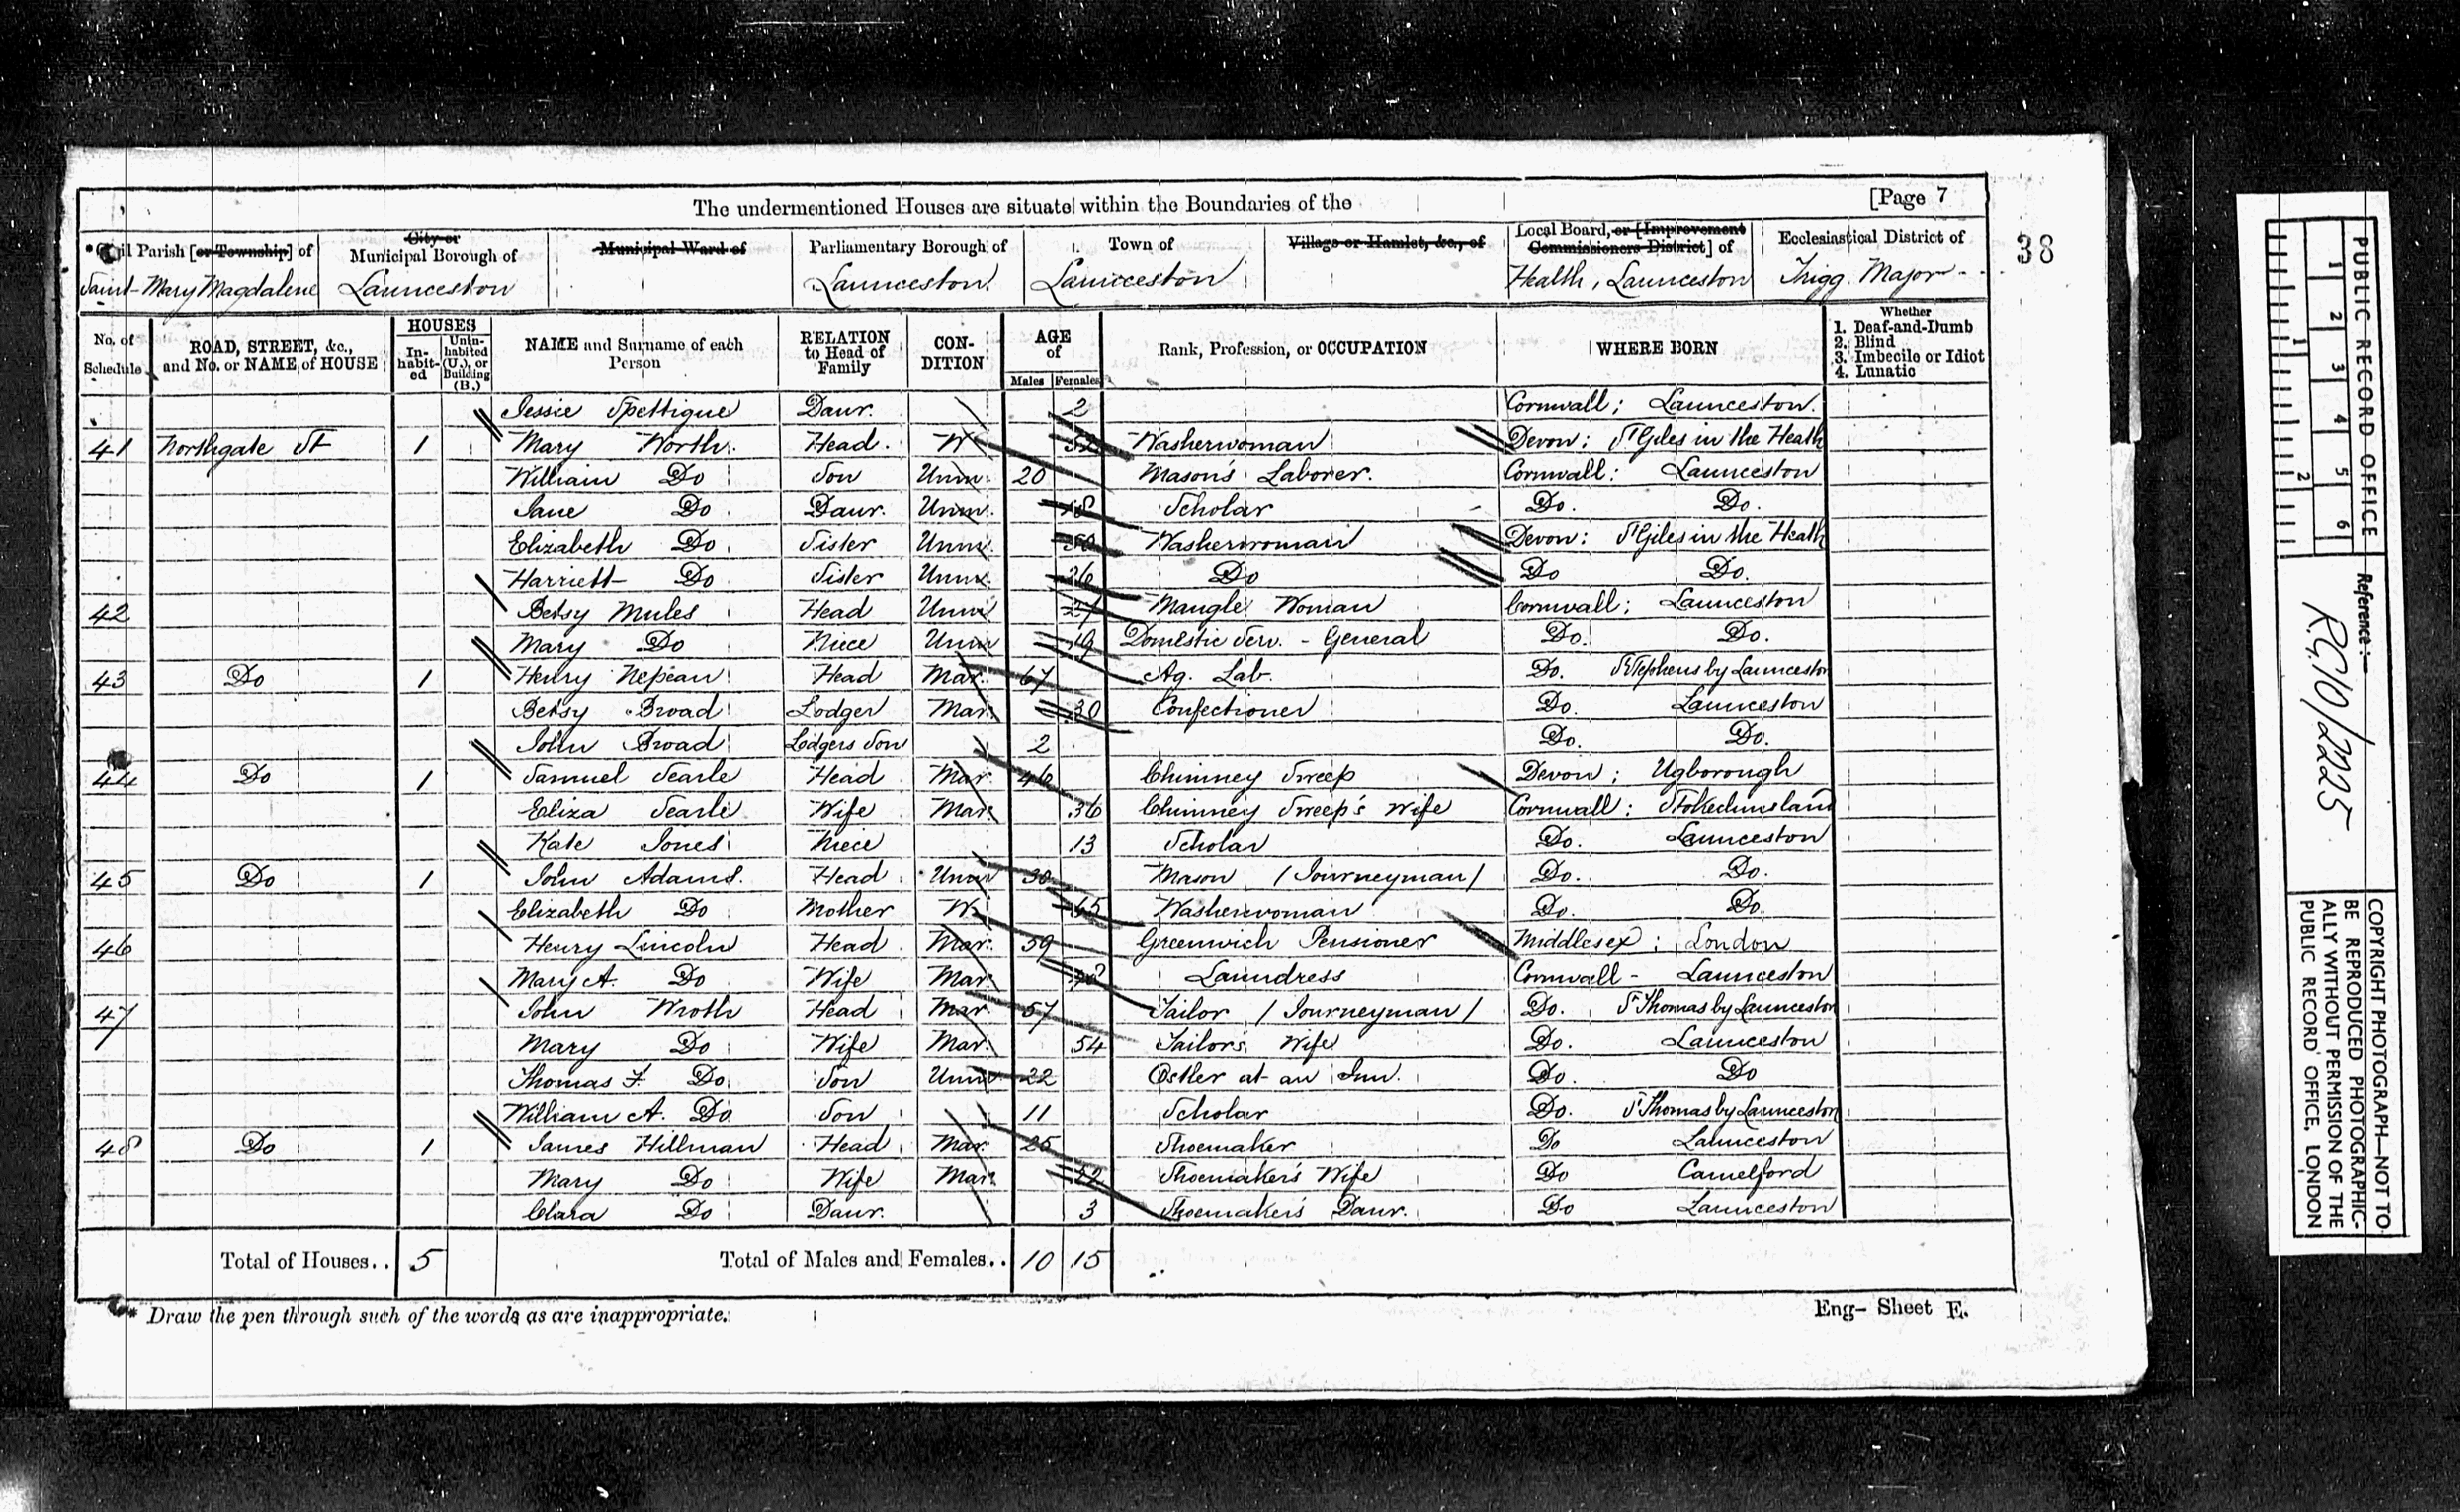 The undermentioned Houses are situate within the Boundaries of the [Page 7
*Civil Parish [or Township] of Saint Mary Magdalene
City or Municipal Borough of Launceston
Municipal Ward of
Parliamentary Borough of Launceston
Town of Launceston
Village or Hamlet, &c., of
Local Board, or [Improvement Commissioners District] of Health, Launceston
Ecclesiastical District of Trigg Major
38
No. of Schedule
ROAD, STREET, &c., and No. or NAME of HOUSE
HOUSES
In-habit-ed
Unin-habited (U.), or Building (B.)
NAME and Surname of each Person
RELATION to Head of Family
CON-DITION
AGE of
Males Females
Rank, Profession, or OCCUPATION
WHERE BORN
Whether
1. Deaf-and-Dumb
2. Blind
3. Imbecile or Idiot
4. Lunatic
Jessie Spettigue Daur. 2 Cornwall; Launceston.
41 Northgate St 1 Mary Worth Head W Washerwoman Devon: St Giles in the Heath
William Do Son Unm. 20 Mason's Laborer. Cornwall: Launceston
Jane Do Daur. Unm. 18 Scholar Do. Do.
Elizabeth Do Sister Unm. 50 Washerwoman Devon: St Giles in the Heath
Harriett Do Sister Unm. 36 Do Do Do.
42 Betsy Mules Head Unm 27 Mangle Woman Cornwall; Launceston
Mary Do Niece Unm 19 Domestic Serv. - General Do. Do.
43 Do 1 Henry Nepean Head Mar. 67 Ag. Lab. Do. St Stephens by Launceston
Betsy Broad Lodger Mar. 30 Confectioner Do. Launceston
John Broad Lodgers Son 2 Do. Do.
44 Do 1 Samuel Searle Head Mar. 46 Chimney Sweep Devon; Ugborough
Eliza Searle Wife Mar. 36 Chimney Sweep's Wife Cornwall:
Kate Jones Niece 13 Scholar Do. Launceston
45 Do 1 John Adams. Head Unm 30 Mason (Journeyman) Do. Do.
Elizabeth Do Mother W. 65 Washerwoman Do. Do
46 Henry Lincoln Head Mar. 59 Greenwich Pensioner Middlesex; London
Mary A. Do Wife Mar. Laundress Cornwall - Launceston
47 John Wroth Head Mar. 57 Tailor (Journeyman) Do. St Thomas by Launceston
Mary Do Wife Mar. 54 Tailor's Wife Do. Launceston
Thomas F. Do Son Unm 22 Ostler at an Inn. Do. Do
William A. Do Son 11 Scholar Do. St Thomas by Launceston
48 Do 1 James Hillman Head Mar. 25 Shoemaker Do Launceston
Mary Do Wife Mar. 22 Shoemaker's Wife Do Camelford
Clara Do Daur. 3 Shoemaker's Daur. Do Launceston
Total of Houses.. 5 Total of Males and Females.. 10 15
* Draw the pen through such of the words as are inappropriate.
Eng- Sheet E.
PUBLIC RECORD OFFICE
1 2 3 4 5 6
1 2
Reference:-
R.G.10/2225
COPYRIGHT PHOTOGRAPH—NOT TO
BE REPRODUCED PHOTOGRAPHIC-
ALLY WITHOUT PERMISSION OF THE
PUBLIC RECORD OFFICE, LONDON